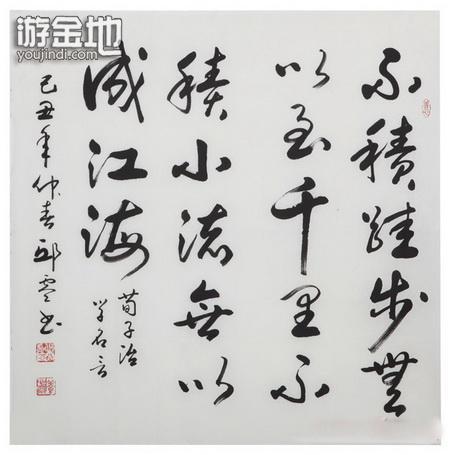 游金地
youjindi.com
不積跬步無
以至千里不
積小流無以
成江海
荀子治
学名言
己丑年仲春邱书